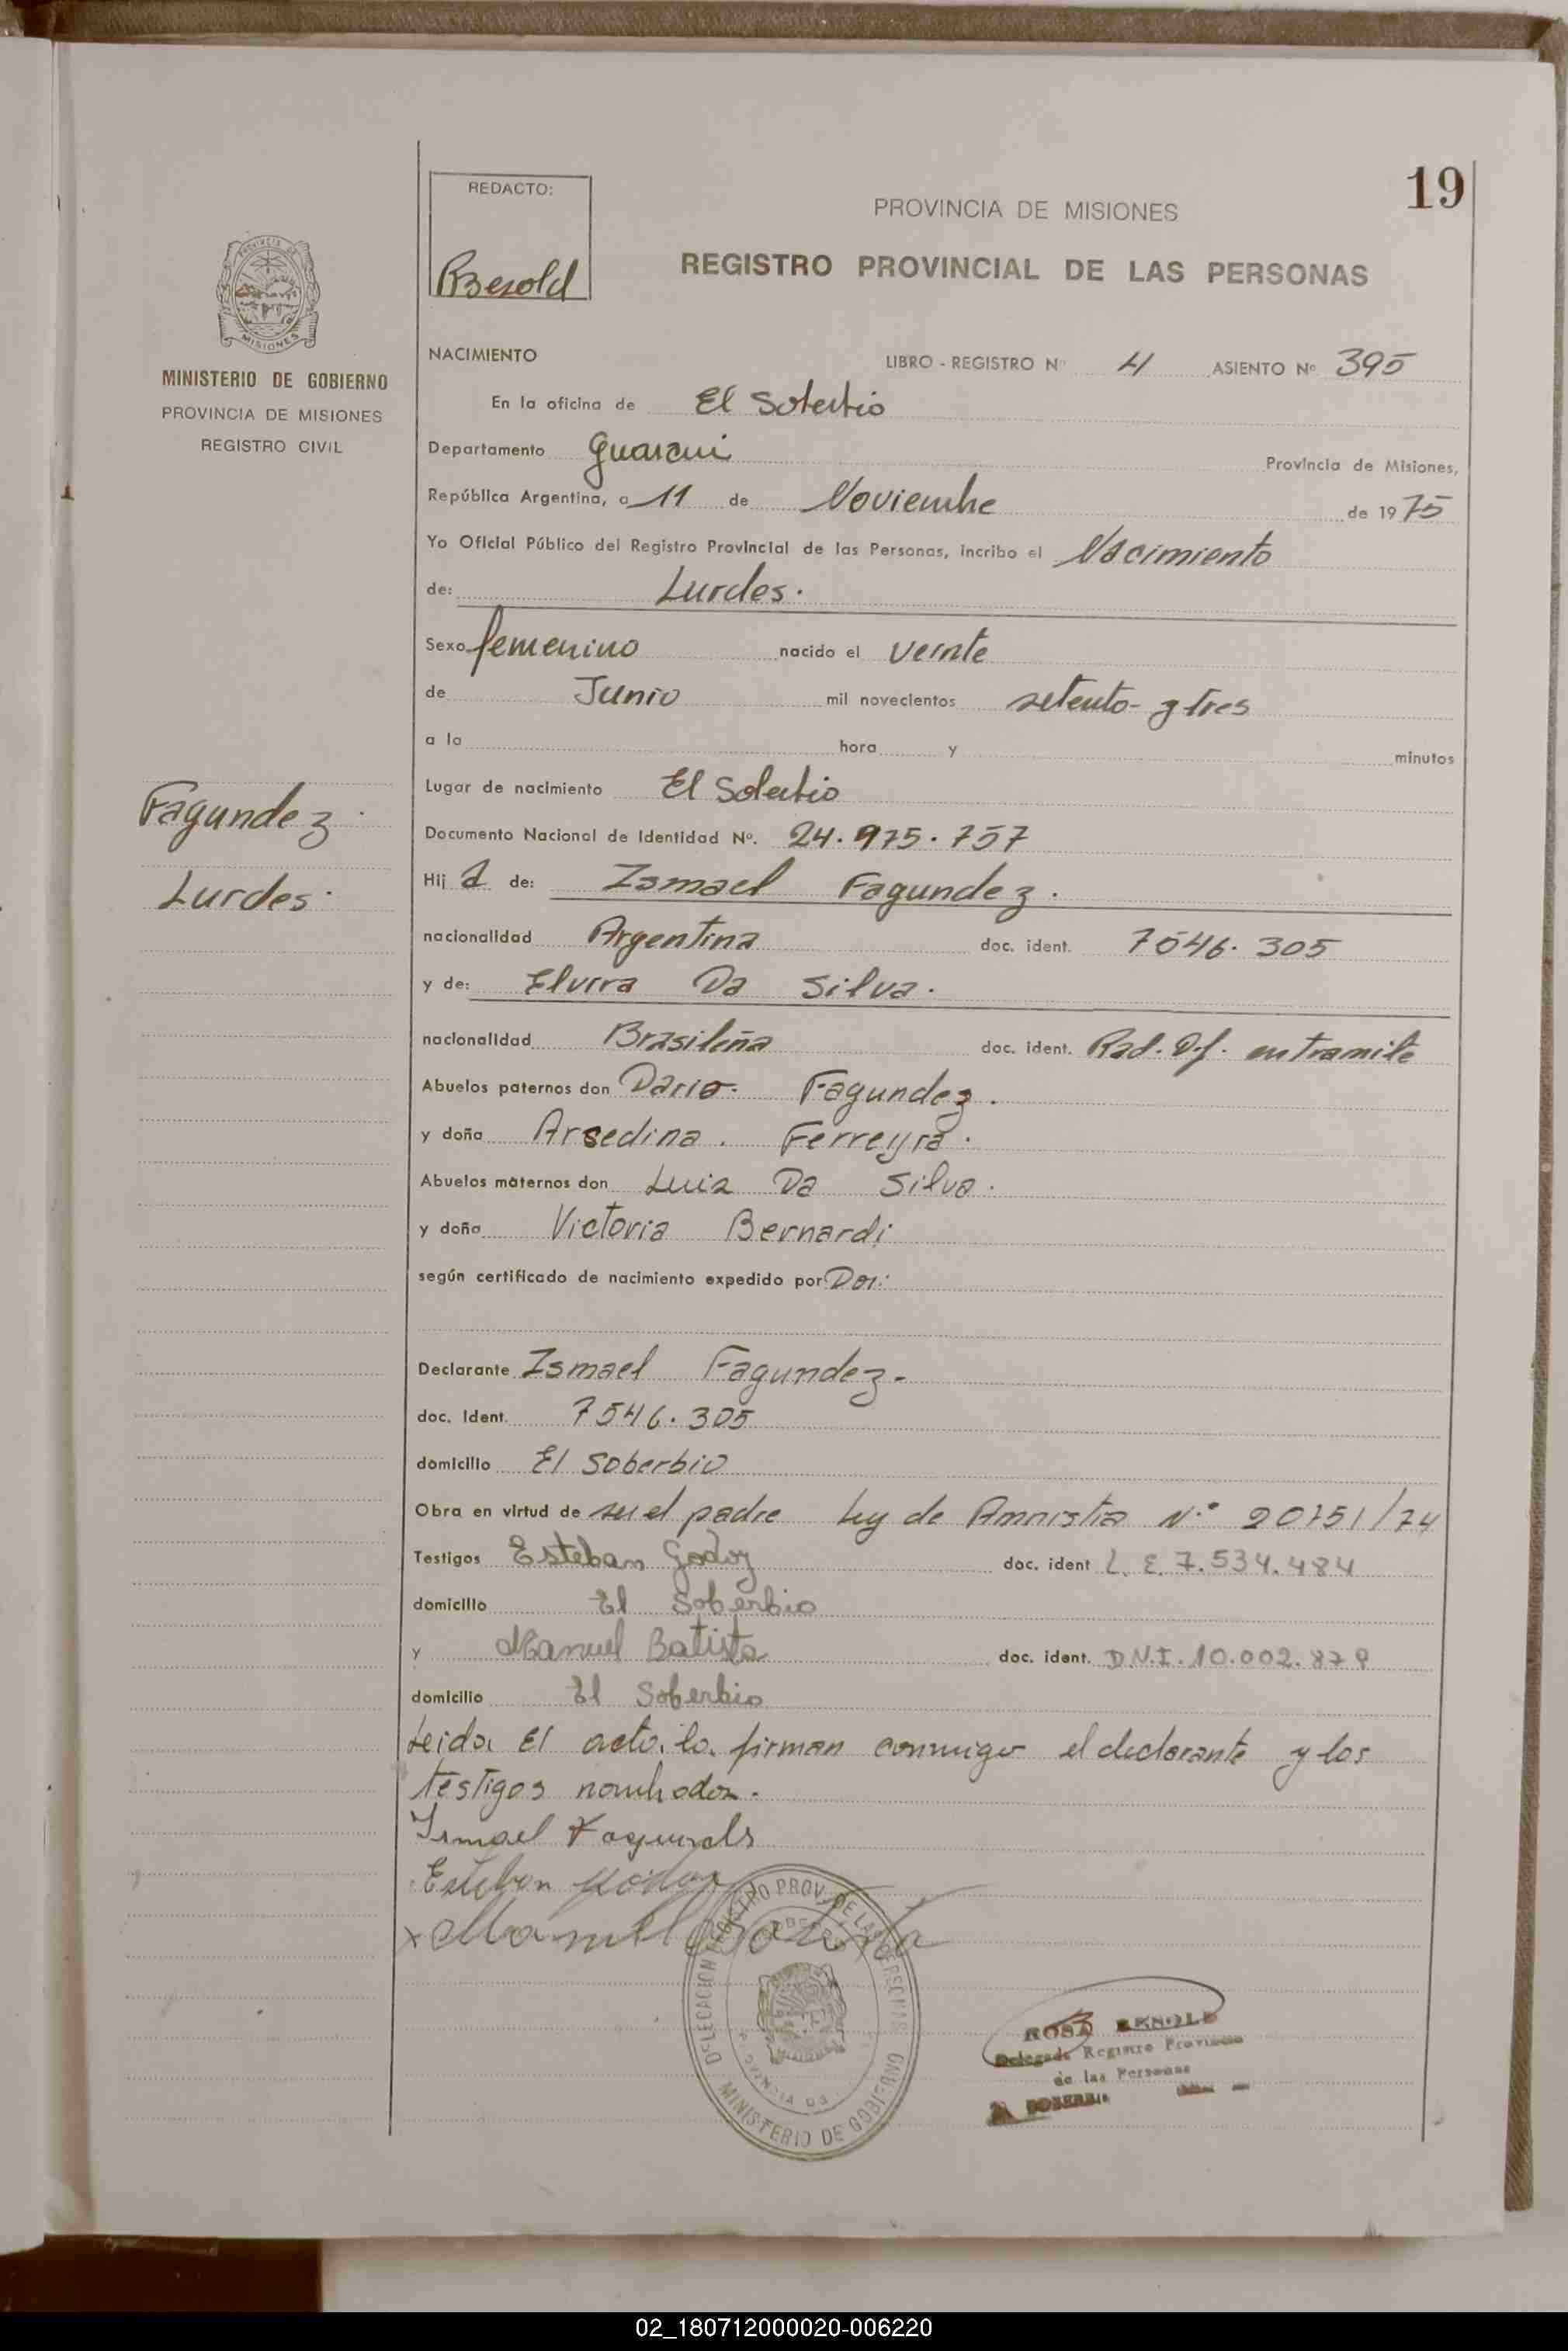 19
REDACTO:
Besold
PROVINCIA DE MISIONES
REGISTRO PROVINCIAL DE LAS PERSONAS
MISIONES
MINISTERIO DE GOBIERNO
PROVINCIA DE MISIONES
REGISTRO CIVIL
NACIMIENTO LIBRO - REGISTRO Nº 4 ASIENTO Nº 395
En la oficina de El Soberbio
Departamento Guarani Provincia de Misiones,
República Argentina, a 11 de Noviembre de 1975
Yo Oficial Público del Registro Provincial de las Personas, incribo el Nacimiento
de: Lurdes.
Sexo femenino nacido el veinte
de Junio mil novecientos setenta y tres
a la hora y minutos
Lugar de nacimiento El Soberbio
Fagundez
Lurdes.
Documento Nacional de Identidad Nº. 24.975.757
Hij a de: Ismael Fagundez.
nacionalidad Argentina doc. ident. 7546.305
y de: Elvira Da Silva.
nacionalidad Brasileña doc. ident. Rad. Df. en tramite
Abuelos paternos don Dario Fagundez.
y doña Arsedina. Ferreyra.
Abuelos maternos don Luiz Da Silva.
y doña Victoria Bernardi
según certificado de nacimiento expedido por Dos:
Declarante Ismael Fagundez-
doc. Ident. 7546.305
domicilio El Soberbio
Obra en virtud de ser el padre Ley de Amnistia Nº 20751/74
Testigos Esteban Godoy doc. ident L. E. 7.534.484
domicilio El Soberbio
y Manuel Batista doc. ident. D.N.I. 10.002.879
domicilio El Soberbio
Leida El acta, la firman conmigo el declarante y los
testigos nombrados.
Ismael Fagundes
Esteban Godoy
x Manuel Batista
DELEGACION REGISTRO PROV. DE LAS PERSONAS
MINISTERIO DE GOBIERNO
ROSA BESOLD
Delegada Registro Provincial
de las Personas
EL SOBERBIO
02_180712000020-006220